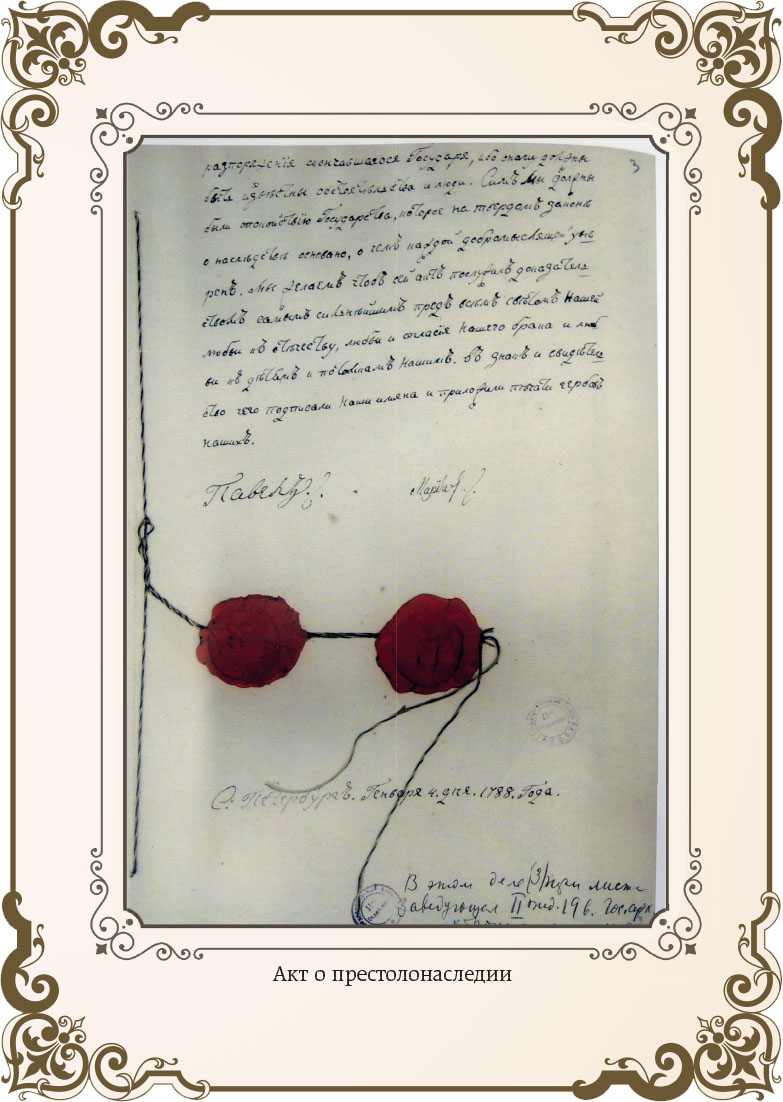 3
разпоряженiя скончавшагося Государя, ибо оныя должны
быть извѣстны обстоятельства и люди. Симъ Мы должны
были спокойствiю Государства, которое на твердомъ законѣ
о наслѣдствѣ основано, о чемъ каждой добромыслящей увѣ
ренъ. Мы желаемъ чтобъ сей актъ послужилъ доказатель
ствомъ самымъ сильнѣйшимъ предъ всѣмъ свѣтомъ Нашей
любви къ отечеству, любви и согласiя Нашего брака и люб
ви къ дѣтямъ и потомкамъ Нашимъ. Въ знакъ и свидѣтел
ство чего подписали Наши имяна и приложили печати гербовъ
Нашихъ.
Павелъ Марiя
С: Петербургъ. Генваря 4. дня. 1788. Года.
В этом деле (3) три листа
Заведующая II отд.
Акт о престолонаследии